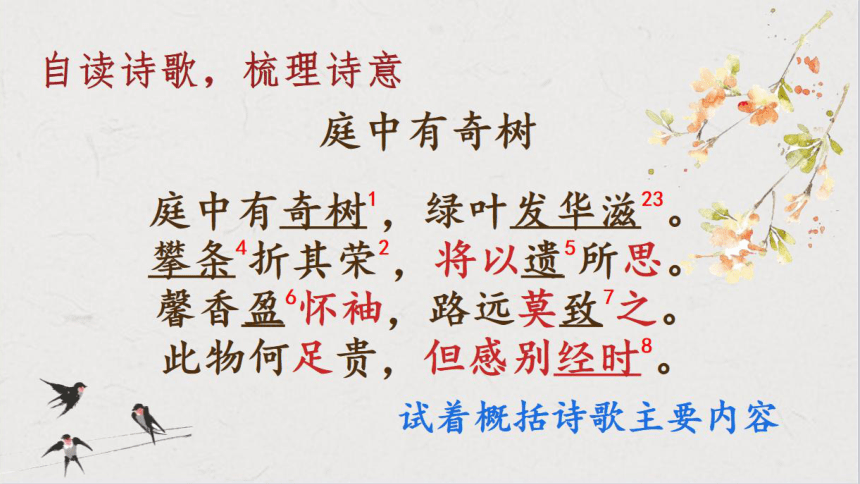 自读诗歌，梳理诗意
庭中有奇树
庭中有奇树1，绿叶发华滋23。
攀条4折其荣2，将以遗5所思。
馨香盈6怀袖，路远莫致7之。
此物何足贵，但感别经时8。
试着概括诗歌主要内容